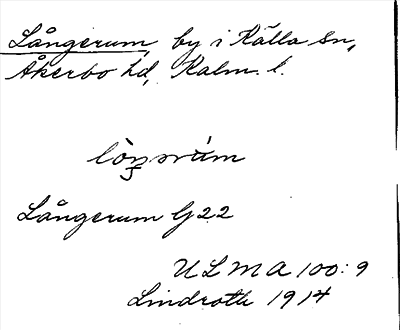 Långerum, by i Källa sn,
Åkerbo hd, Kalm. l.
Långerum G22
ULMA 100:9
Lindroth 1914